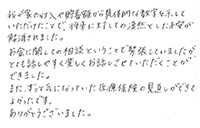 我が家の収入や貯蓄額から具体的な数字を示して
いただけたことで、将来に対しての漠然とした不安が
解消されました。
お金に関しての相談ということで緊張していましたが
とても話しやすく楽しくお話しさせていただくことが
できました。
また、ずっと気になっていた医療保険の見直しができて
よかったです。
ありがとうございました。